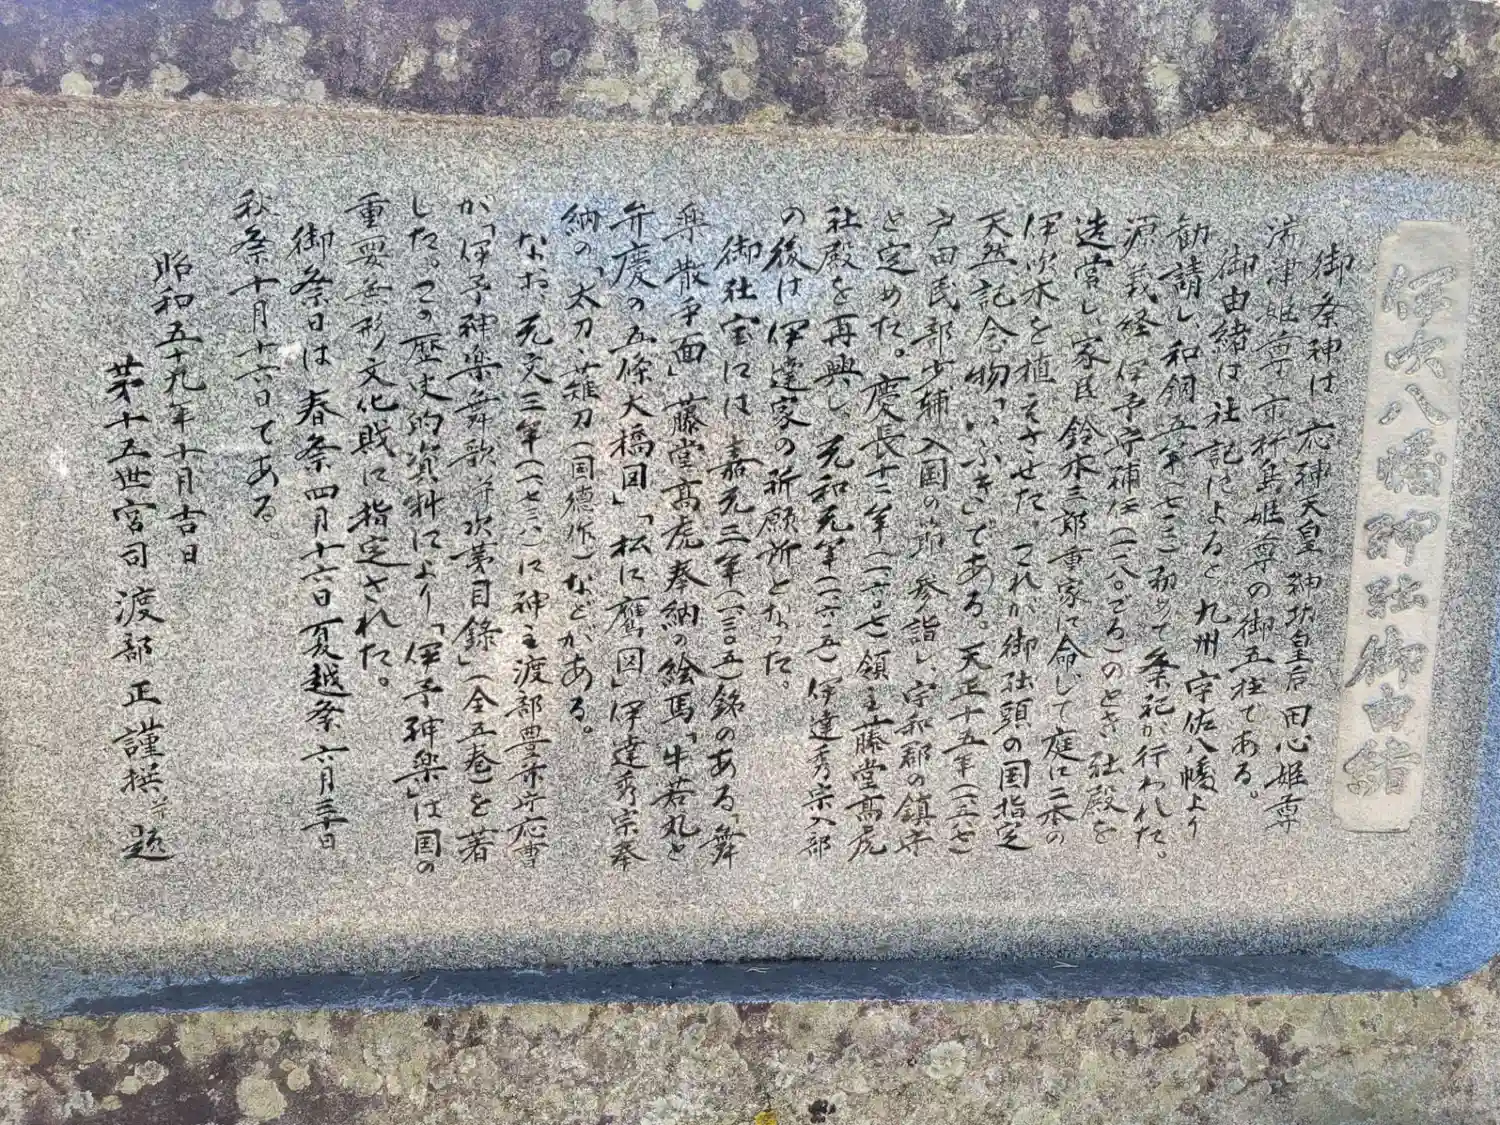 伊吹八幡神社御由緒
御祭神は 応神天皇 神功皇后 田心姫尊
湍津姫尊 市杵島姫尊の御五柱である。
御由緒は 社記によると 九州 宇佐八幡より
勧請し、和銅五年(七一二)初めて祭祀が行われた。
源義経 伊予守補任(一一八〇ごろ)のとき 社殿を
造営し、家臣 鈴木三郎重家に命じて庭に二本の
伊吹木を植えさせた。これが御社頭の国指定
天然記念物「いぶき」である。天正十五年(一五八七)
戸田民部少輔 入国の節 参詣し、宇和郡の鎮守
と定めた。慶長十二年(一六〇七)領主 藤堂高虎
社殿を再興し、元和元年(一六一五)伊達秀宗入部
の後は 伊達家の祈願所となった。
御社宝には 嘉元三年(一三〇五)銘のある「舞
楽 散手面」藤堂高虎奉納の絵馬「牛若丸と
弁慶の五條大橋図」「松に鷹図」伊達秀宗奉
納の「太刀・薙刀(国徳作)などがある。
なお、元文三年(一七三八)に神主 渡部豊前守応曹
が「伊予神楽舞歌并次第目録」(全五巻)を著
した。この歴史的資料により「伊予神楽」は国の
重要無形文化財に指定された。
御祭日は 春祭四月十六日 夏越祭 六月三十日
秋祭十月十六日である。
昭和五十九年十月吉日
第十五世宮司 渡部 正 謹撰并題